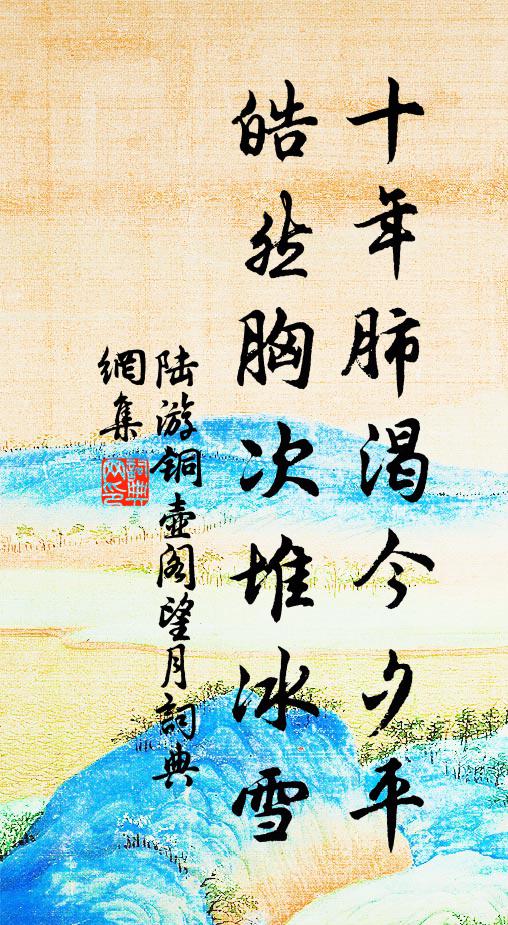 十年肺渴今夕平
皓然胸次堆冰雪
陆游铜壶阁望月詞典
網集
詞典